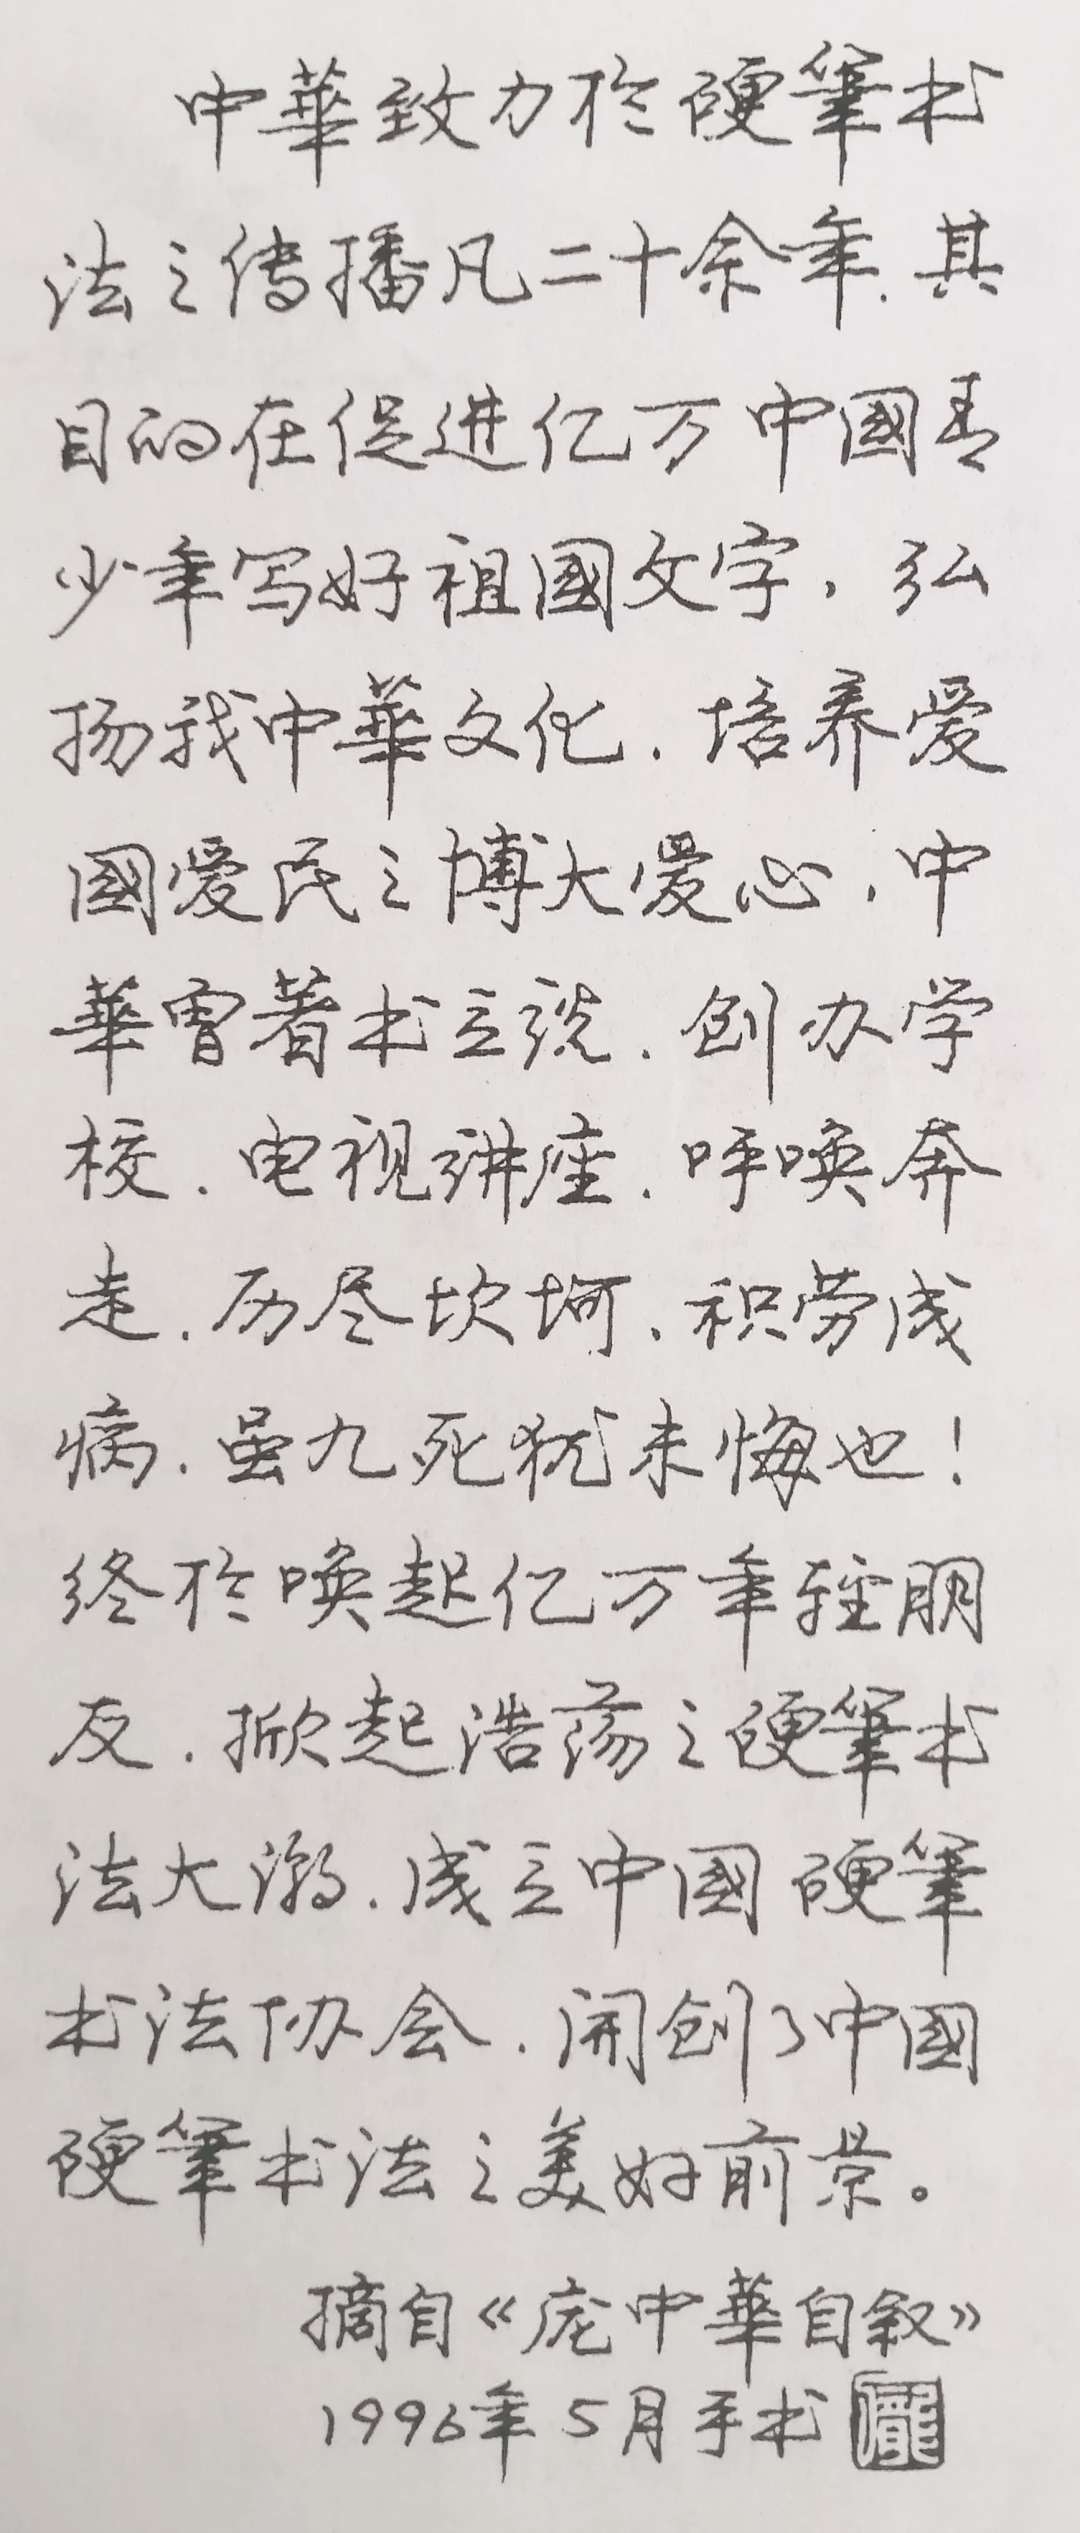 中華致力於硬筆书
法之传播凡二十余年.其
目的在促进亿万中國青
少年写好祖國文字,弘
扬我中華文化.培养爱
國爱民之博大爱心,中
華曾着书立说.创办学
校.电视讲座.呼唤奔
走.历尽坎坷、积劳成
病.虽九死犹未悔也!
终於唤起亿万年轻朋
友.掀起浩荡之硬筆书
法大潮.成立中國硬筆
书法协会.開创了中國
硬筆书法之美好前景。
摘自《庞中華自叙》
1996年5月手书